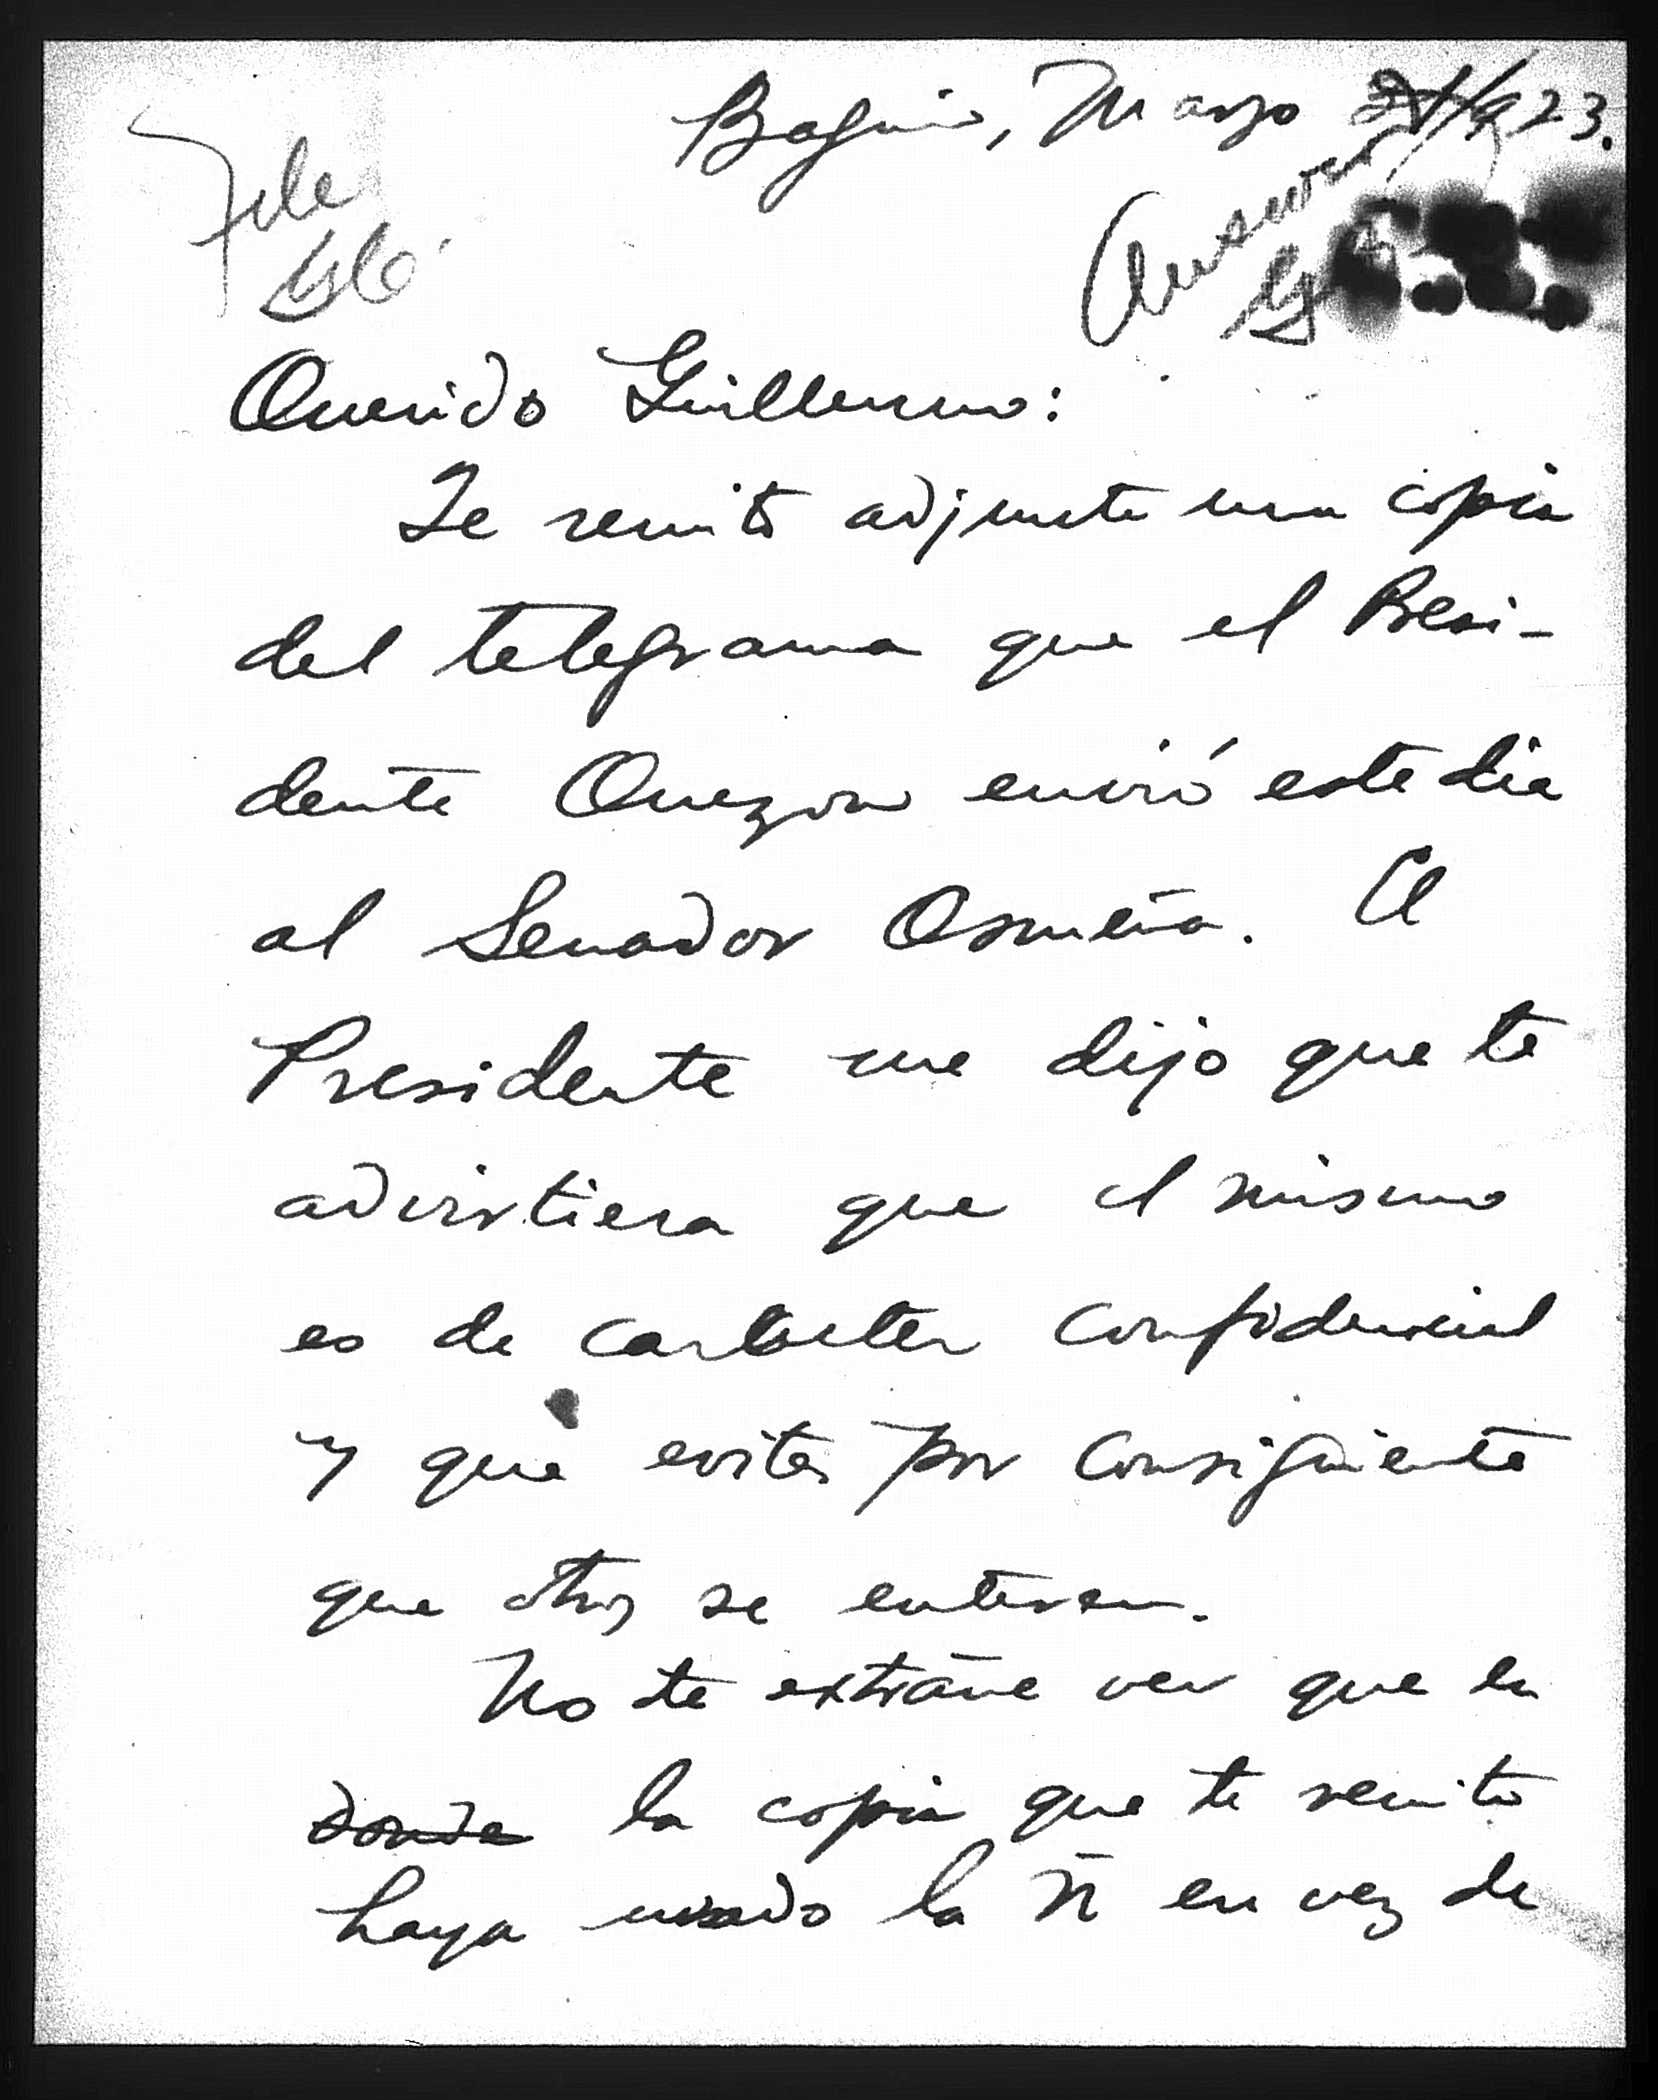 Baguio, Marzo 21/923.
File
Answered
Querido Guillermo:
Te remito adjunta una copia
del telegrama que el Presi-
dente Quezon envió este dia
al Senador Osmeña. El
Presidente me dijo que te
advirtiera que el mismo
es de carácter confidencial
y que evites por consiguiente
que otros se enteren.
No te extrañe ver que en
donde la copia que te remito
haya usado la ñ en vez de